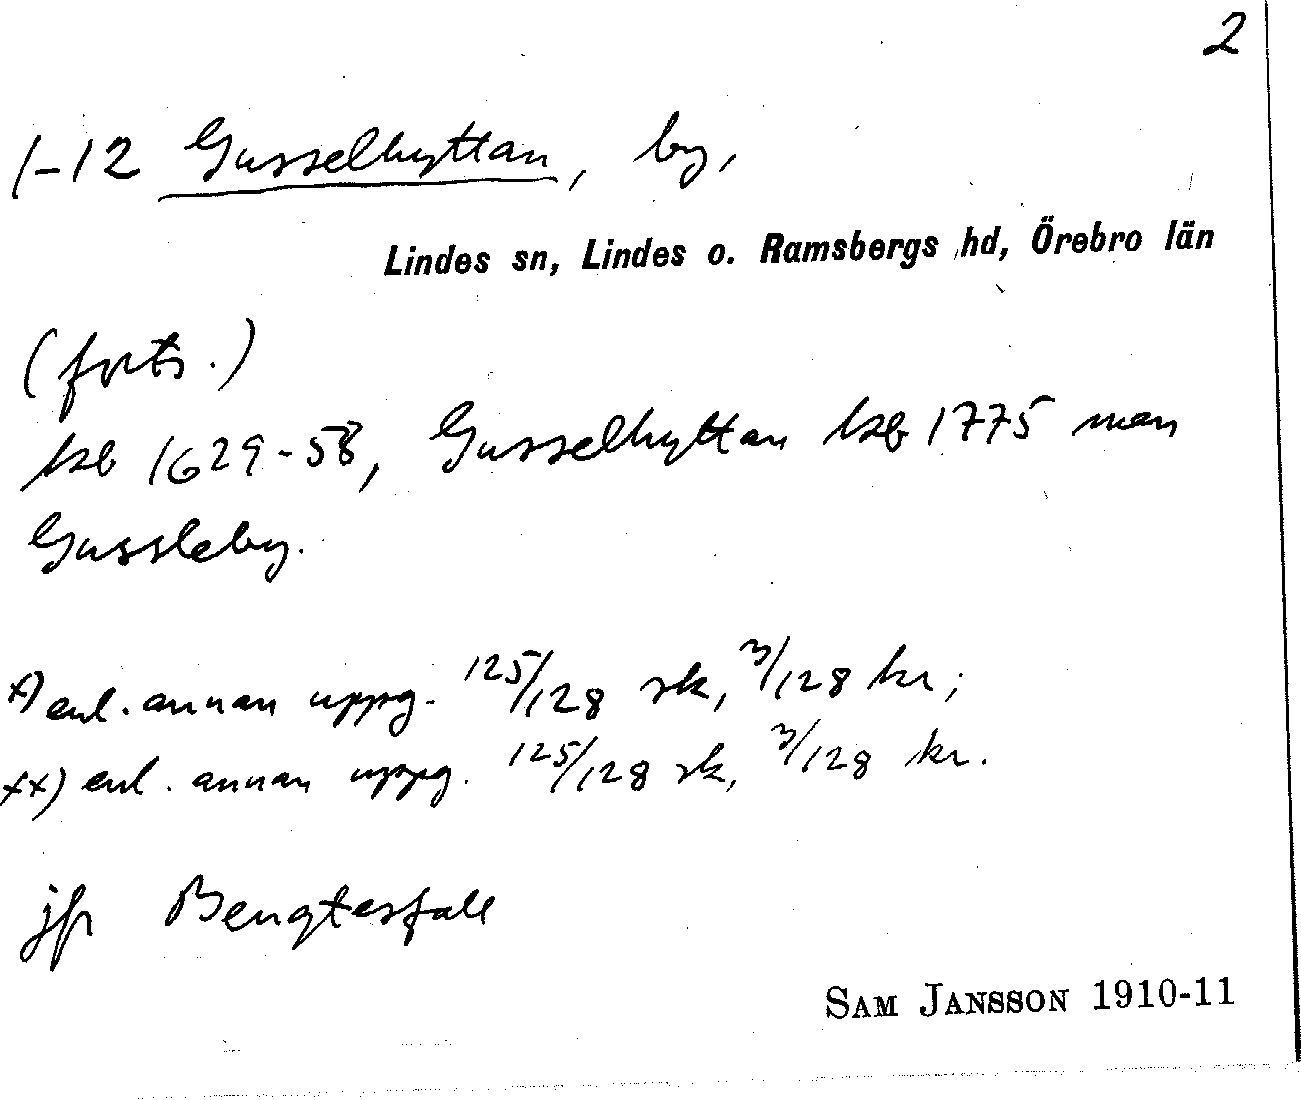 2
1-12 Gusselhyttan, by,
Lindes sn, Lindes o. Ramsbergs hd, Örebro län
(forts.)
ksb 1629-58, Gusselhyttan ksb 1775 men
Gussleby.
x) enl. annan uppg. 125/128 sk, 3/128 kr;
xx) enl. annan uppg. 125/128 sk, 3/128 kr.
jfr Bengtesfall
SAM JANSSON 1910-11